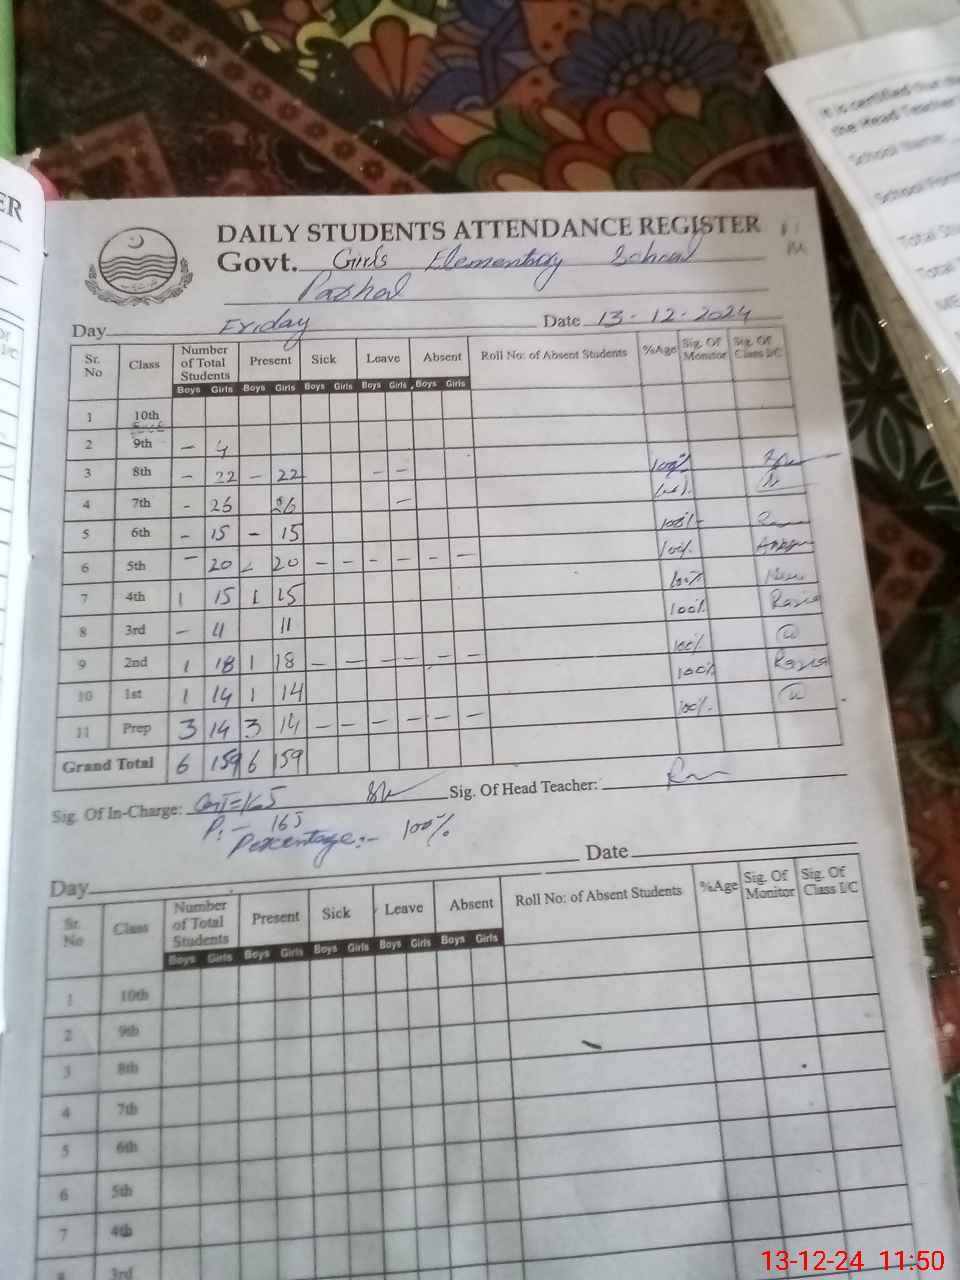 ER
It is certified that the
the Head Teacher
School Name:
School
Total
Total
DAILY STUDENTS ATTENDANCE REGISTER
Govt. Girls Elementary School
Day Friday Date 13-12-2024
Sr. No Class Number of Total Students Present Sick Leave Absent Roll No: of Absent Students %Age Sig. Of Monitor Sig. Of Class I/C
Boys Girls Boys Girls Boys Girls Boys Girls Boys Girls
1 10th
2 9th - 4
3 8th - 22 - 22 - - 100%
4 7th - 26 -
5 6th - 15 - 15 100%
6 5th - 20 20 - - - - - - 100%
7 4th 1 15 1 15 100%
8 3rd - 11 11 100% Razia
9 2nd 1 18 1 18 - - - - - - 100%
10 1st 1 14 1 14 100% Razia
11 Prep 3 14 3 14 - - - - - - 100%
Grand Total 6 159 6 159
Sig. Of In-Charge: Sig. Of Head Teacher:
P:- 165
Percentage:- 100%
Day Date
Sr. No Class Number of Total Students Present Sick Leave Absent Roll No: of Absent Students %Age Sig. Of Monitor Sig. Of Class I/C
Boys Girls Boys Girls Boys Girls Boys Girls Boys Girls
1 10th
2 9th
3 8th
4 7th
5 6th
6 5th
7 4th
8 3rd
13-12-24 11:50